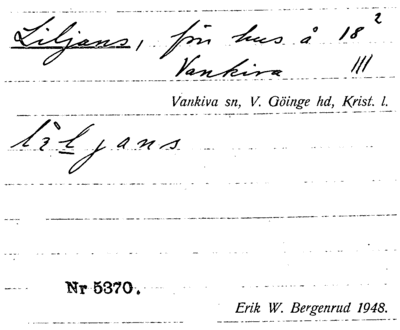 Liljans, förr hus å 18²
Vankiva III
Vankiva sn, V. Göinge hd, Krist. l.
liljans
Nr 5370.
Erik W. Bergenrud 1948.